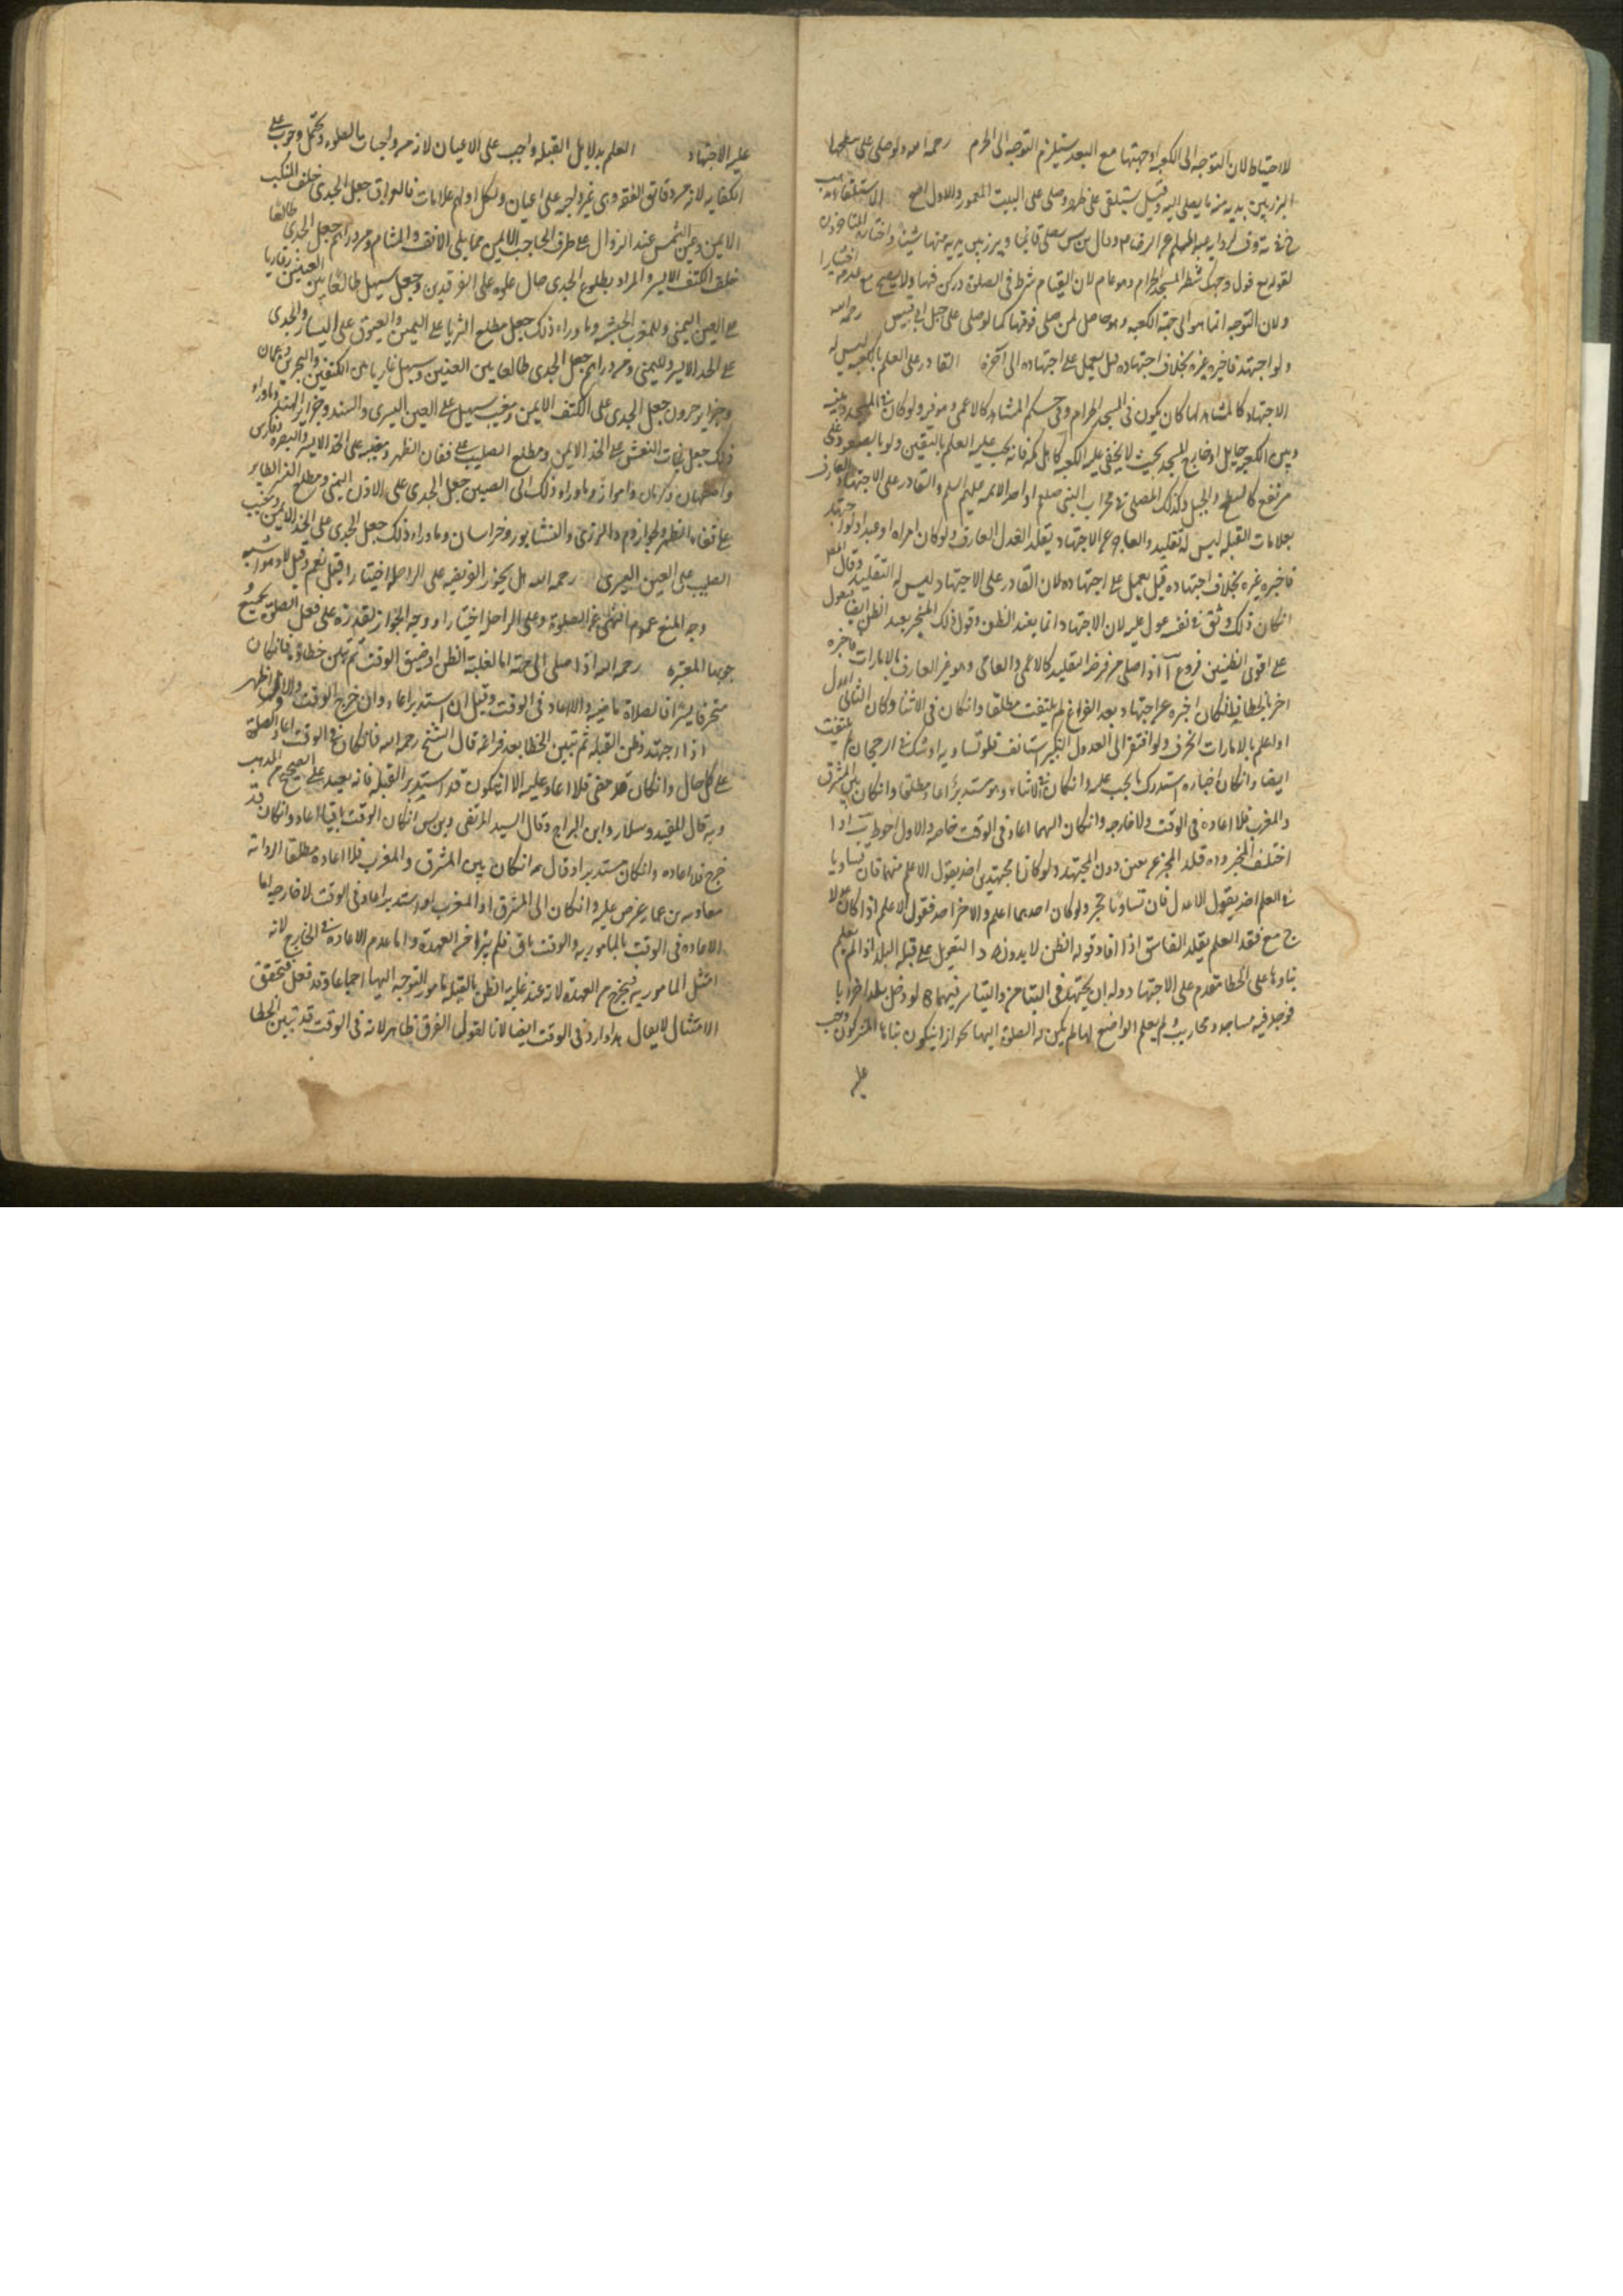 لا احتياط لان التوجه الى الكعبه او جهتها مع البعد يستلزم التوجه الى الحرم رحمه الله ولو صلى على سطحها
ابرز بين يديه منها ما يصلى اليه وقيل يستلقى على ظهره وصلى على البيت المعمور والاول اصح الاستلقاء
لقوله تع فول وجهك شطر المسجد الحرام وهو عام لان القيام شرط فى الصلوة وركن فيها ولا يصح مع عدمه اختيارا
ولان التوجه انما هو الى جهة الكعبه وهو حاصل لمن صلى فوقها كما لو صلى على جبل ابى قبيس رحمه الله
ولو اجتهد فاخبره غيره بخلاف اجتهاده قيل يعمل على اجتهاده الى آخره القادر على العلم بالكعبه ليس له
الاجتهاد كالمشاهد لها كان يكون فى المسجد الحرام وفى حكم المشاهد كالاعمى ولو كان فى المسجد وبينه
وبين الكعبه حايل او خارج المسجد بحيث لا يخفى عليه الكعبه كاهل مكه فانه يجب عليه العلم باليقين ولو بالصعود على
مرتفع كالسطح والجبل وكذلك المصلى فى محراب النبى صلعم او احد الايمه عليهم السلم والقادر على الاجتهاد العارف
بعلامات القبله ليس له تقليد والعاجز عن الاجتهاد يقلد العدل العارف ولو كان امراه او عبدا ولو اجتهد
فاخبره غيره بخلاف اجتهاده قيل يعمل على اجتهاده لان القادر على الاجتهاد ليس له التقليد وقال
ان كان ذلك وثق فى نفسه عول عليه لان الاجتهاد انما يفيد الظن وقول ذلك المخبر يفيد الظن ايضا فيعول
على اقوى الظنين فروع آ اذا صلى من فرضه التقليد كالاعمى والعامى وهو غير العارف بالامارات فاخبره
اخر بالخطا فان كان اخبره عن اجتهاد بعد الفراغ لم يلتفت مطلقا وان كان فى الاثنا وكان الثانى اعدل
او اعلم بالامارات انحرف ولو افتقر الى العدول الكثير استانف فلو تساويا او شك فى الرجحان لم يلتفت
ايضا وان كان اخباره استدرك ما يجب عليه وان كان فى الاثناء وهو مستدبر اعاد مطلقا وان كان بين المشرق
والمغرب فلا اعاده فى الوقت ولا خارجه وان كان اليهما اعاد فى الوقت خاصه والاول احوط ب اذا
اختلف المخبر قلد المخبر عن يقين دون المجتهد ولو كانا مجتهدين اخذ بقول الاعلم منهما فان تساويا
فى العلم اخذ بقول الاعدل فان تساويا تخير ولو كان احدهما اعلم والاخر اعدل فقول الاعلم اذا كان عدلا
ج مع فقد العلم يقلد الفاسق اذا افاد قوله الظن لا بدونه د التعويل على قبلة البلد اذا لم يعلم
بناوها على الخطا مقدم على الاجتهاد وله ان يجتهد فى التيامن والتياسر فيهما ه لو دخل بلدا خرابا
فوجد فيه مساجد ومحاريب ولم يعلم الواضع لها لم يكن له الصلوة اليها لجواز ان يكون بناها المشركون ووجب
عليه
عليه الاجتهاد العلم بدلايل القبله واجب على الاعيان لانه من واجبات الصلوه ويحتمل وجوبه على
الكفايه لانه من دقايق الفقه وهى غير واجبه على اعيان ولكل اقليم علامات فالعراق جعل الجدى خلف المنكب
الايمن وعين الشمس عند الزوال على طرف الحاجب الايمن مما يلى الانف والشام ومن وراهم جعل الجدى طالعا
خلف الكتف الايسر والمراد بطلوع الجدى حال علوه على الفرقدين وجعل سهيل طالعا بين العينين وغاربا
على العين اليمنى وللمغرب الحبشه وما وراء ذلك جعل مطلع الثريا على اليمين والعيوق على اليسار والجدى
على الخد الايسر ولليمن ومن وراهم جعل الجدى طالعا بين العينين وسهيل غاربا بين الكتفين والبحرين وعمان
جعل الجدى على الكتف الايمن ومغيب سهيل على العين اليسرى والسند وجزاير الهند وما وراء
ذلك جعل بنات النعش على الخد الايمن ومطلع الصليب على قفان الظهر ومغيبه على الخد الايسر والبصره وفارس
واصفهان وكرمان واهواز وما وراء ذلك الى الصين جعل الجدى على الاذن اليمنى ومطلع النسر الطاير
على قفاء الظهر وخوارزم والرى والنشابور وخراسان وما وراء ذلك جعل الجدى على الخد الايمن ومغيب
الصليب على العين اليسرى رحمه الله هل يجوز الفريضه على الراحله اختيارا قيل نعم وقيل لا وهو اشبه
وجه المنع عموم النهى عن الصلوة على الراحله اختيارا ووجه الجواز لقدرته على فعل الصلوة بجميع
المعتبره رحمه الله اذا صلى الى جهة اما لغلبة الظن او ضيق الوقت ثم تبين خطاوه فان كان
منحرفا يسيرا فالصلاة ماضيه والا اعاد فى الوقت وقيل ان استدبر اعاد وان خرج الوقت والاول اظهر
اذا اجتهد وظن القبله ثم تبين الخطا بعد فراغه قال الشيخ رحمه الله فان كان فى الوقت اعاد الصلوة
على كل حال وان كان قد مضى فلا اعاده عليه الا ان يكون قد استدبر القبله فانه يعيد على الصحيح من المذهب
وبه قال المفيد وسلار وابن البراج وقال السيد المرتضى وبن س ان كان الوقت باقيا اعاد وان كان قد
خرج فلا اعاده وان كان مستدبرا وقال ان كان بين المشرق والمغرب فلا اعاده مطلقا
معاويه بن عمار وان كان الى المشرق او المغرب او استدبر اعاد فى الوقت لا خارجه اما
الاعاده فى الوقت والوقت باق فلم يخرج عن العهدة واما عدم الاعاده فى الخارج لانه
امتثل المامور به فيخرج من العهده لانه عند غلبة الظن بالقبله مامور بالتوجه اليها اجماعا وقد فعل فتحقق
الامتثال لا يقال هذا وارد فى الوقت ايضا لانا نقول الفرق ظاهر لانه فى الوقت قد تبين الخطا